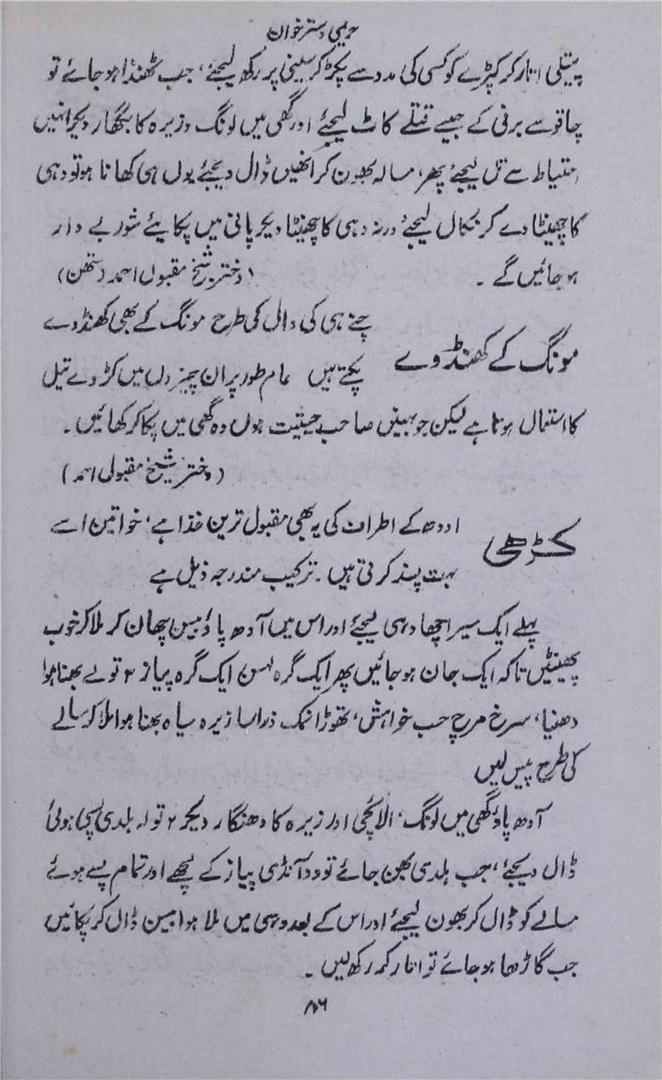 حریمی دسترخوان
پتیلی اتار کر کپڑے کو کسی کی مدد سے پکڑ کر سینی پر رکھ لیجئے، جب ٹھنڈا ہو جائے تو
چاقو سے برفی کے جیسے قتلے کاٹ لیجئے اور گھی میں لونگ و زیرہ کا بگھار دیکر انہیں
احتیاط سے تل لیجئے پھر، مسالہ بھون کر انھیں ڈال دیجئے یوں ہی کھانا ہو تو دہی
کا چھینٹا دے کر نکال لیجئے ورنہ دہی کا چھینٹا دیکر پانی میں پکایئے شوربے دار
ہو جائیں گے ۔ (دختر شیخ مقبول احمد رتھن)
مونگ کے کھنڈوے چنے ہی کی دال کی طرح مونگ کے بھی کھنڈوے
پکتے ہیں عام طور پر ان چیزوں میں کڑوے تیل
کا استعمال ہوتا ہے لیکن جو بہنیں صاحب حیثیت ہوں وہ گھی میں پکا کر کھائیں ۔
(دختر شیخ مقبول احمد)
کڑھی اودھ کے اطراف کی یہ بھی مقبول ترین غذا ہے، خواتین اسے
بہت پسند کرتی ہیں ۔ ترکیب مندرجہ ذیل ہے
پہلے ایک سیر اچھا دہی لیجئے اور اس میں آدھ پاؤ بیسن چھان کر ملا کر خوب
پھینٹیں تاکہ ایک جان ہو جائیں پھر ایک گرہ لہسن ایک گرہ پیاز ۲ تولے بھنا ہوا
دھنیا، سرخ مرچ حسب خواہش، تھوڑا نمک ذرا سا زیرہ سیاہ بھنا ہوا ملا کر مسالے
کی طرح پیس لیں
آدھ پاؤ گھی میں لونگ، الائچی اور زیرہ کا دھنگار دیکر ۲ تولہ ہلدی پسی ہوئی
ڈال دیجئے، جب ہلدی بھن جائے تو دو آنڈی پیاز کے لچھے اور تمام پسے ہوئے
مسالے کو ڈال کر بھون لیجئے اور اس کے بعد دہی میں ملا ہوا بیسن ڈال کر پکائیں
جب گاڑھا ہو جائے تو اتار کر رکھ لیں ۔